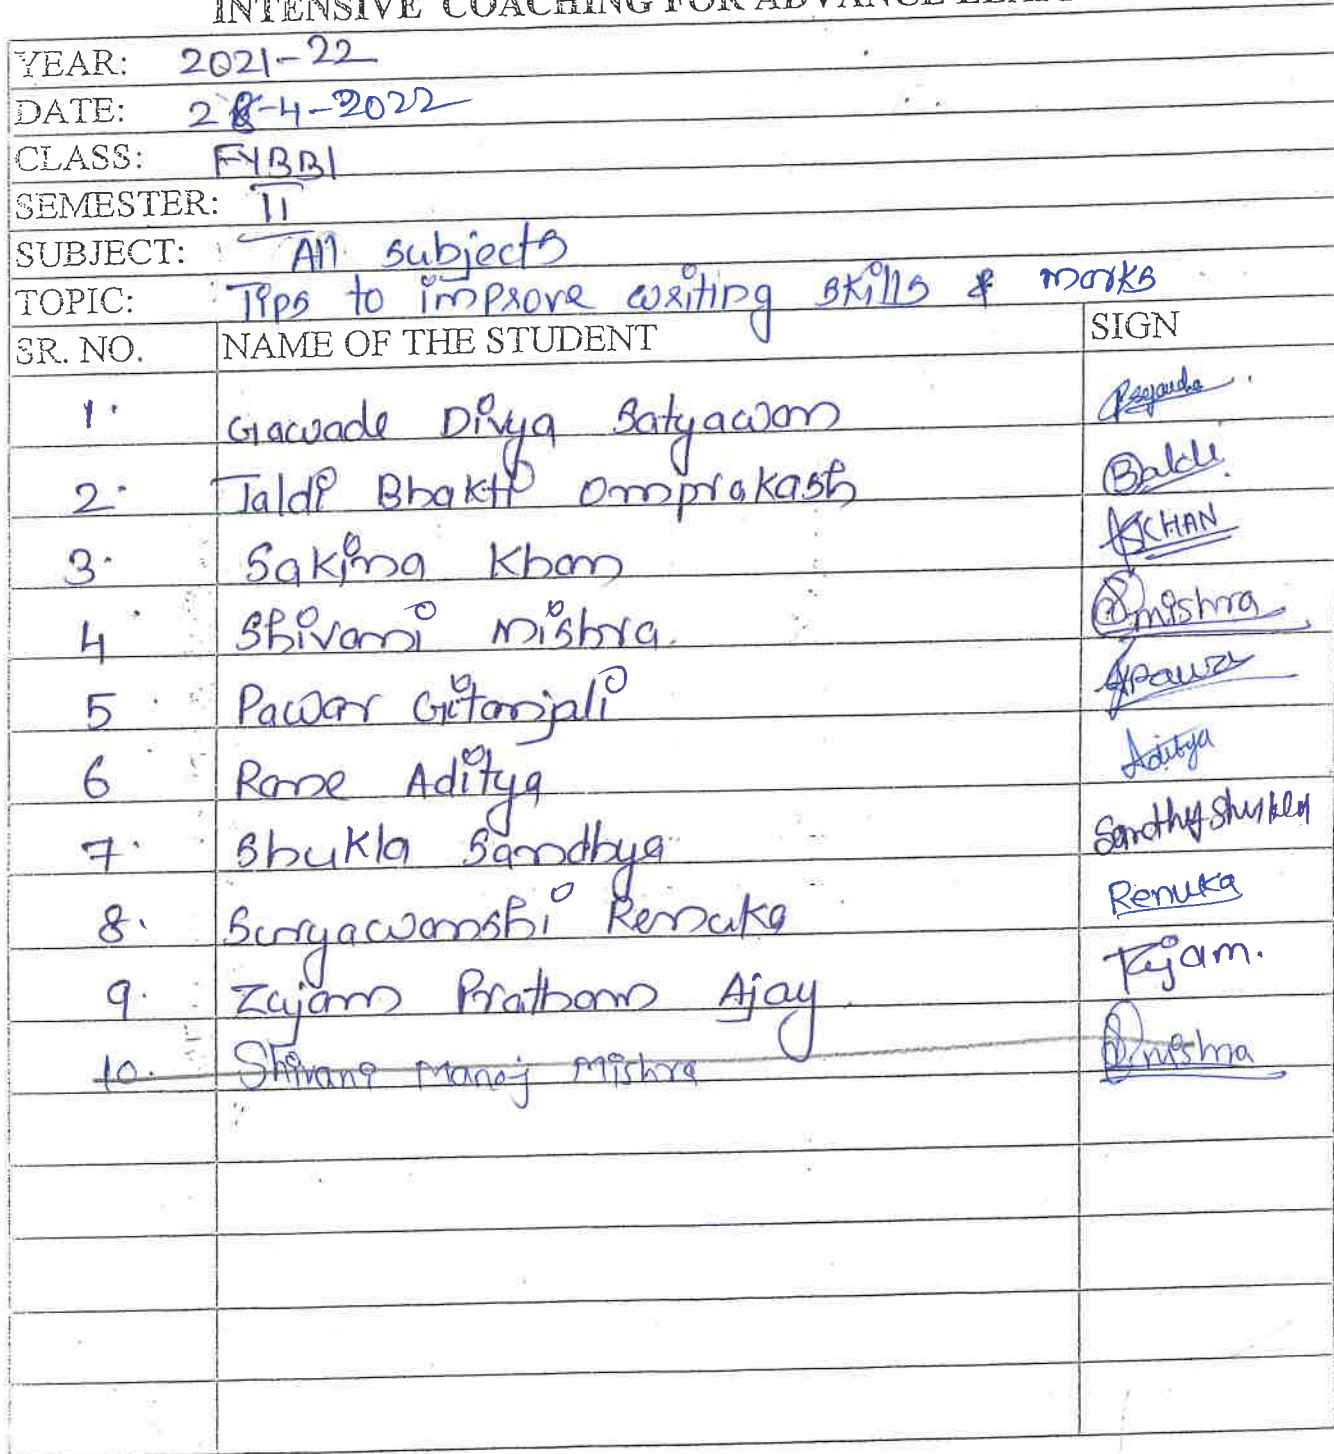 INTENSIVE COACHING FOR ADVANCE
YEAR: 2021-22
DATE: 28-4-2022
CLASS: FYBBI
SEMESTER: II
SUBJECT: All subjects
TOPIC: Tips to improve writing skills & marks
SR. NO. NAME OF THE STUDENT SIGN
1. Gawade Divya Satyawan
2. Jaldi Bhakti Omprakash
3. Sakina Khan KHAN
4 Shivani Mishra. Smishra
5 Pawar Gitanjali
6 Rane Aditya Aditya
7. Shukla Sandhya Sandhya Shukla
8. Suryawanshi Renuka Renuka
9. Zujam Pratham Ajay
10. Shivani Manoj Mishra Smishra